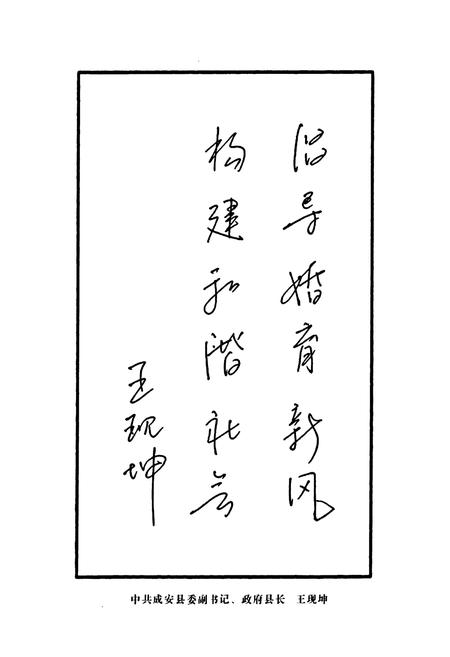 倡导婚育新风
构建和谐社会
王现坤
中共成安县委副书记、政府县长 王现坤